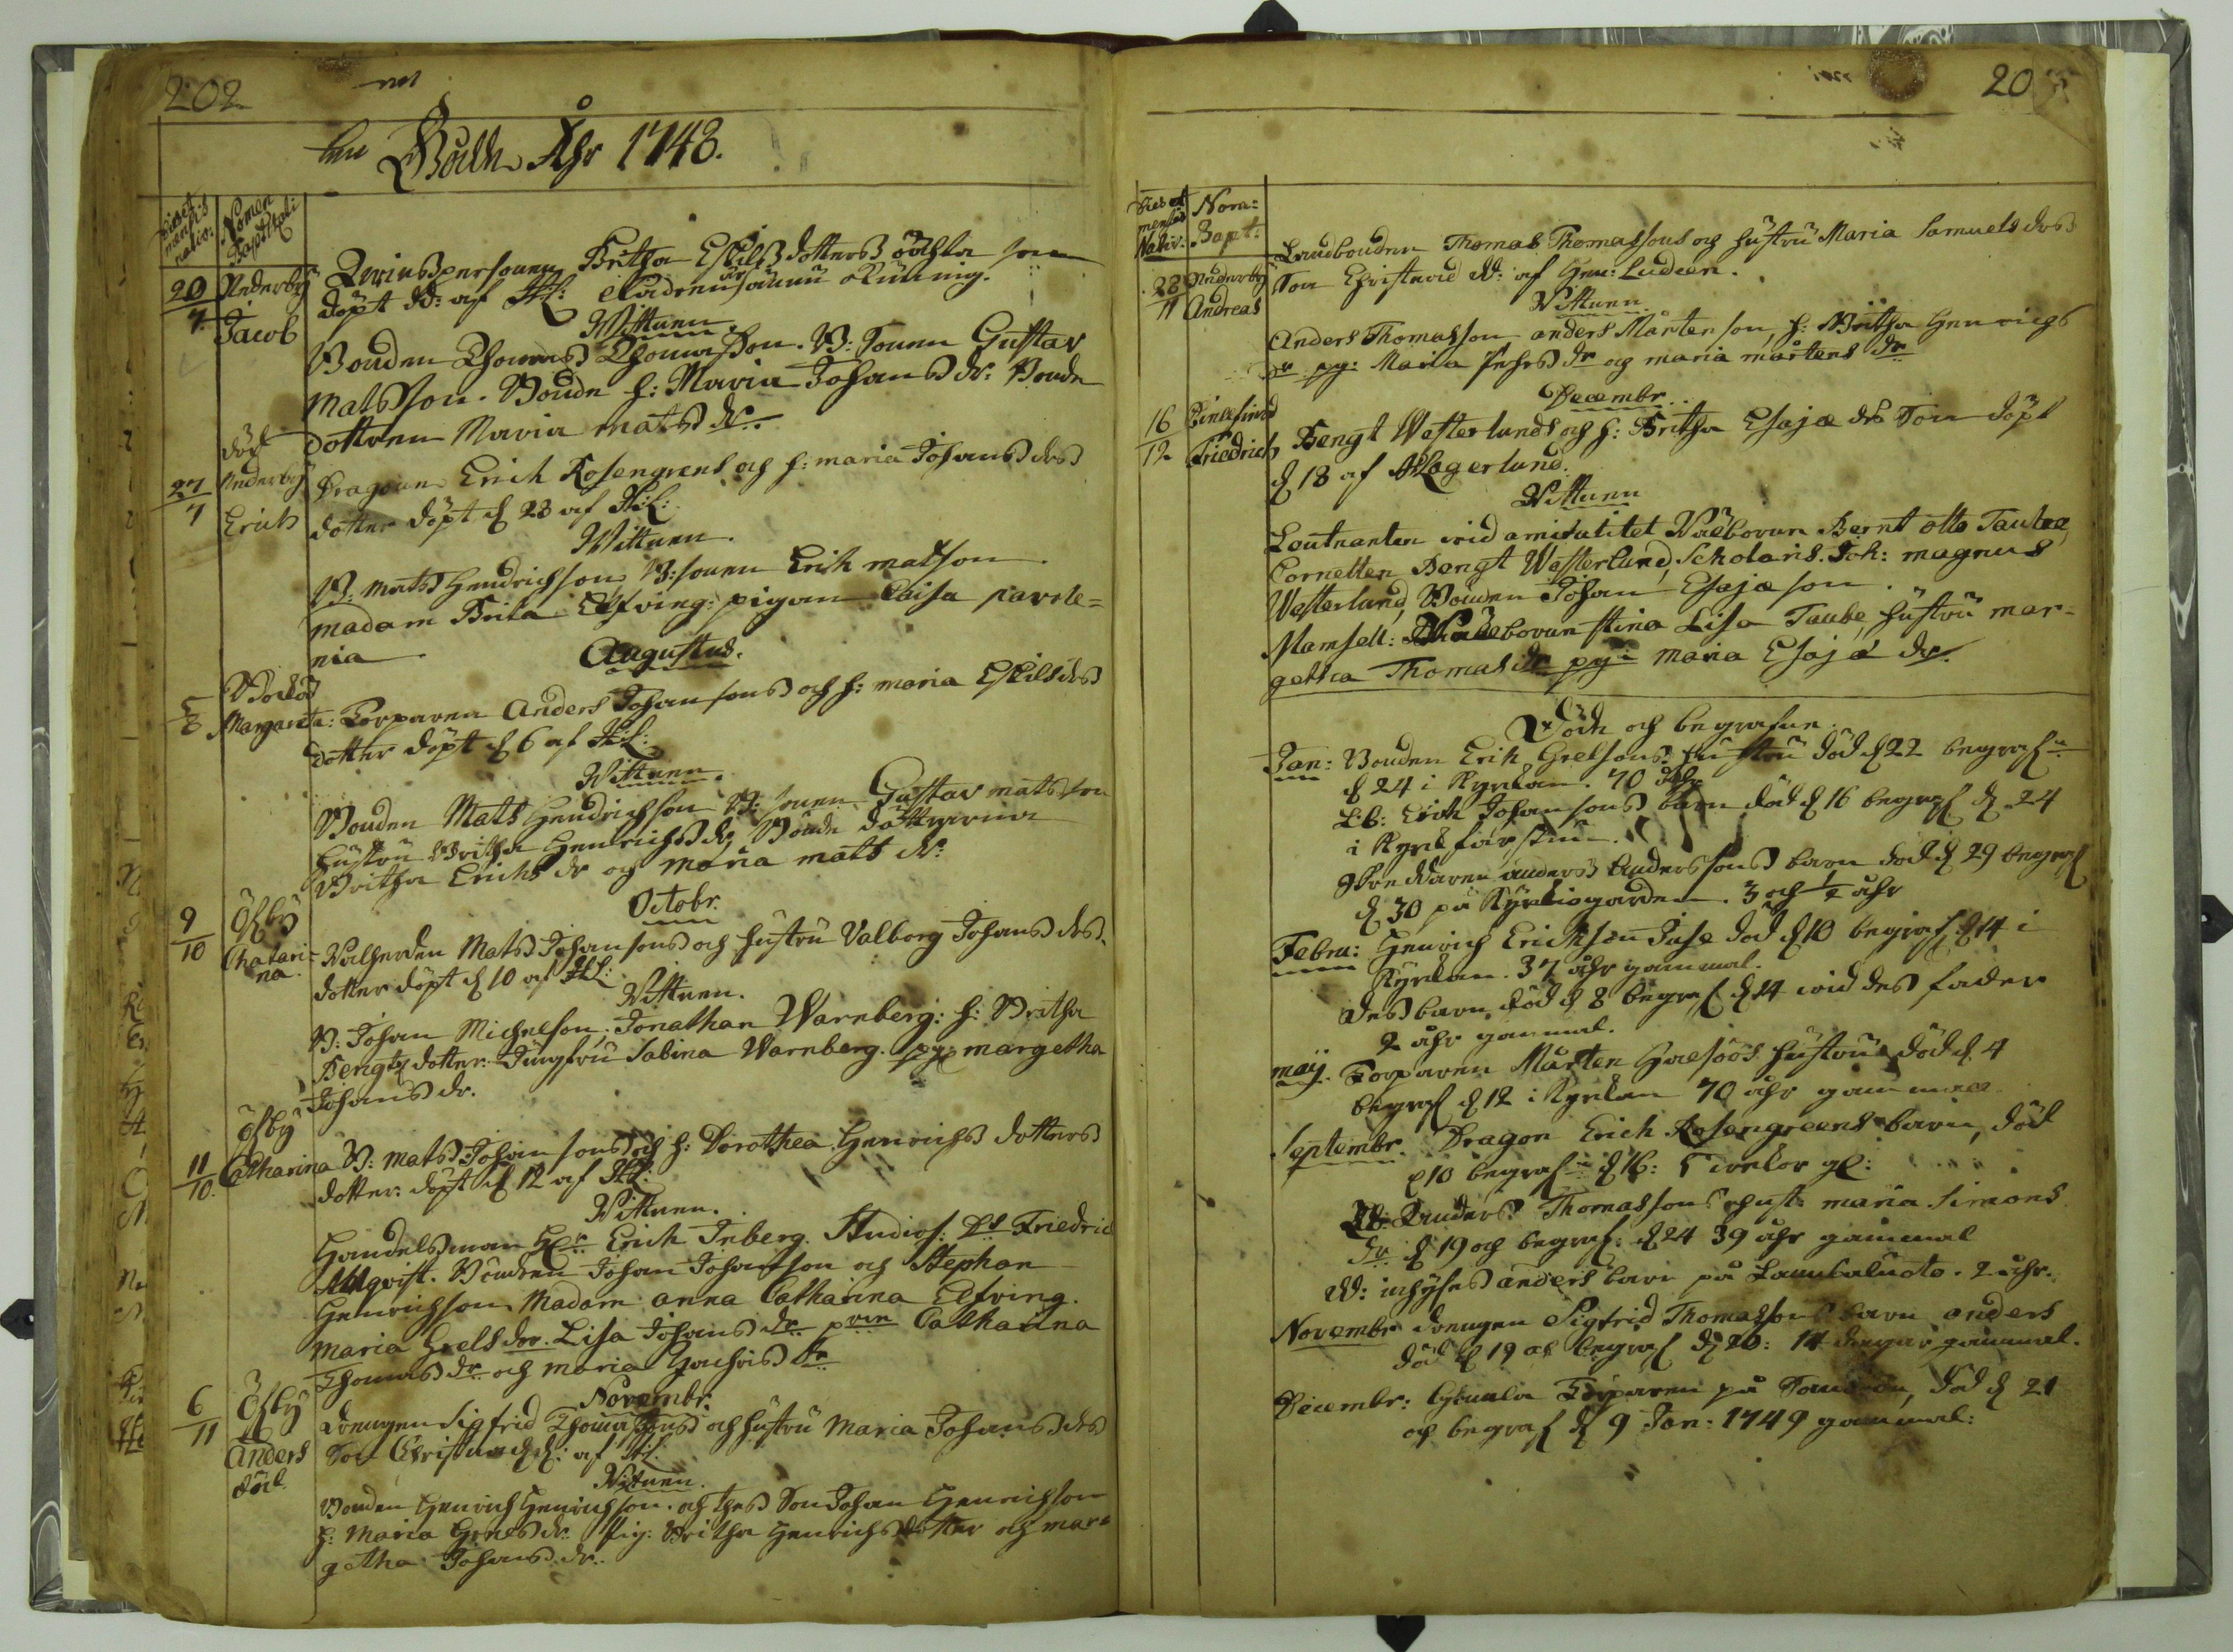 202
Åhr 1748.
Dies et mensis nativ:
Nomen Baptizati
20/7 Nederby Jacob
Qwinspersonen Britha Eskilsdotters oächta son
döpt af
Wittnen
Bonden Thomas Thomasson. B: Sonen Gustav
Matsson. Bonde h: Maria Johansdr: Bonde
dottren Maria Matsdr.
27/7 död Nederby Erich
Dragoun Erich Rosengrens och h: Maria Johansdrs
dotter döpt d 28 af
Wittnen.
B: Mats Hendrichson B: sonen Erik Matson
Madam Brita Elfving: pigan Caisa
Augustus.
5/8 Margareta:
Torparen Anders Johansons och h: Maria Eskilsdrs
dotter döpt d 6 af
Wittnen.
Bonden Mats Hendrichson B: sonen Gustav Matsson
hustru Britha Henrichsdr, Bonde döttrarna
Britha Erichsdr och Maria Matsdr:
Octobr.
9/10 Öfby Chatarina.
Mats Johansons och hustru Valborg Johansdrs.
dotter döpt d 10 af
Wittnen.
B: Johan Michelson, Jonathan Warnberg: h: Britha
Bengtzdotter. Jungfru Sabina Warnberg. pig: Margetha
Johansdr.
11/10. Öfby Catharina
B: Mats Johansons och h: Dorothea Henrichsdotters
dotter: döpt d 12 af
Wittnen.
Handelsman Hr: Erich Inberg. Studios: Ds Friedric
Ahlqvist. Bonden Johan Johansson och Stephan
Henrichson. Madam Anna Catharina Elfving.
Maria Grelsdor. Lisa Johansdr Catharina
Thomasdr och Maria
Novembr.
6/11 Öfby Anders död.
Drengen Sigfrid Thomassons och hustru Maria Johansdrs
Son Christnad af
Wittnen.
Bonden Henrich Henrichson. och thes Son Johan Henrichson
h: Maria Grelsdr. pig: Britha Henrichsdotter och Mar=
getha Johansdr.
20
Dies et mensis Nativ:
Nom: Bapt:
28/11 Nederby Andreas
Landbonden Thomas Thomassons och hustru Maria Samuelsdrs
Son Christnad af
Wittnen.
Anders Thomasson, Anders Mårtenson, h: Britha Henrichs
dr pg: Maria dr och Maria Mårtensdr
Decembr.
16/12 Friedrich
Bengt Westerlunds och h: Britha Esajædrs Son döpt
d 18 af Lagerlund.
Wittnen
Leutnanten wid amiralitet Wälborne Bernt Otto Taube,
Cornetten Bengt Westerlund, Scholaris Joh: Magnus
Westerlund, Bonden Johan Esajæson.
Mamsell: Wälborne Stina Lisa Taube, hustru Mar=
getha Thomasdr pg: Maria Esajædr
Döde och begrafne.
Jan: Bonden Erik Grelsons hustru död d 22 begrafn
d 24 i Kyrkan. 70 åhr
Erik Johansons barn död d 16 begraf d 24
i Kyrk
Skreddaren Anders Anderssons barn död d 29 begraf
d 30 på Kyrkiogården. 3 och 1/2 åhr
Febru: Henrich Erichson död d 10 begraf d 14 i
Kyrkan. 37 åhr gammal.
des barn död d 8 begraf d 14 wid des fader
2 åhr gammal.
Maij. Torparen Mårten hustru död d. 4
begraf d 12 i Kyrkan 70 åhr gammal
Septembr. Dragon Erich Rosengreens barn, död
d 10 begraf d 16: 5 wekor gl:
Anders Thomassons hust: Maria Simons
dr d 19 och begraf: d 24 39 åhr gammal
inhyses Anders barn på 2 åhr.
Novembr drengen Sigfrid Thomasson barn Anders
död d 19 och begraf d 20: 14 dagar gammal.
Decembr: Gamla Torparen på död d 21
och begraf d 9 Jan: 1749 gammal: